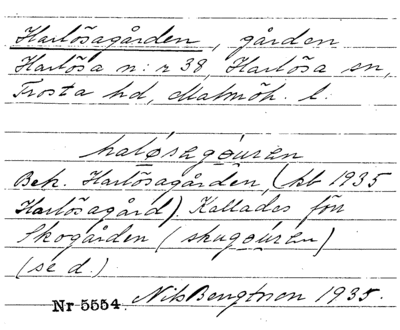 Harlösagården, gården
Harlösa n:r 38, Harlösa sn,
Frosta hd, Malmöh. l.
haløsagǫuren
Bek. Harlösagården, (kb 1935
Harlösagård). Kallades förr
Skogården (skogǫuren)
(se d.)
Nr 5554. Nils Bengtsson 1935.